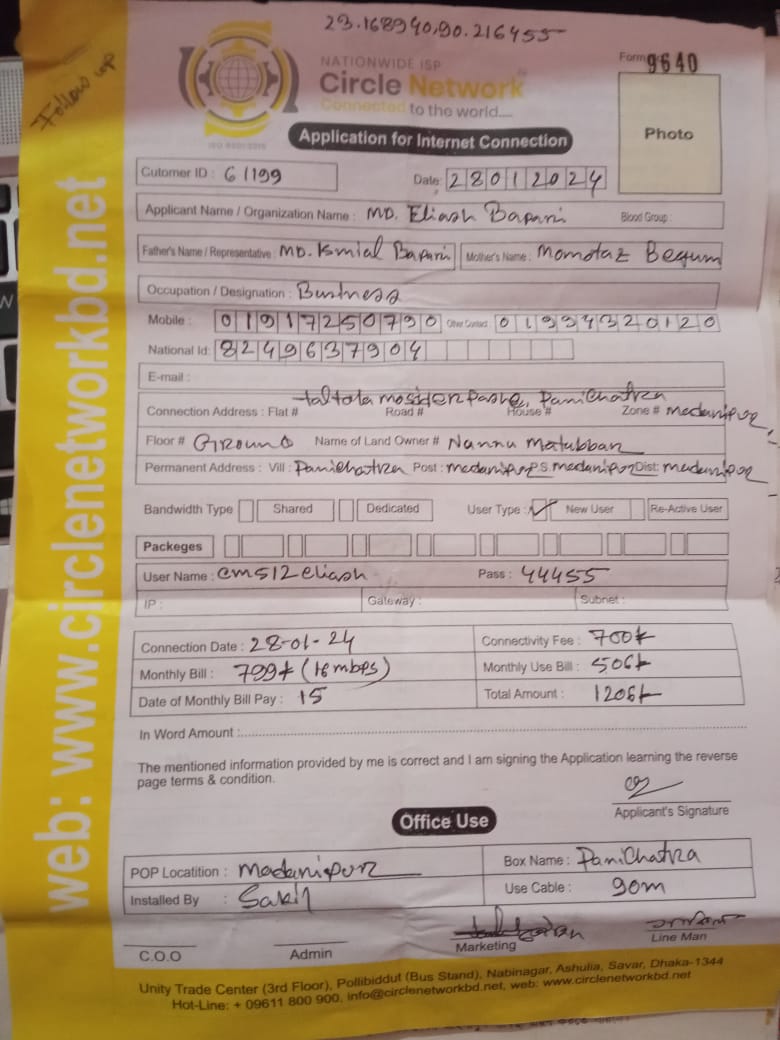 23.168940,90.216455
Follow up
NATIONWIDE ISP
Circle Network
Connected to the world....
ISO 9001:2015
Form 9640
Photo
Application for Internet Connection
Cutomer ID : 61199
Date: 28012024
Applicant Name / Organization Name : MD. Eliash Bapari
Blood Group :
Father's Name / Representative : MD. Ismial Bapari Mother's Name : Momotaz Begum
Occupation / Designation : Business
Mobile : 01917250790 Other Contact 01994320120
National Id: 8249637904
E-mail :
taltola mosjider pashe, Panichatra
Connection Address : Flat # Road # House # Zone # madaripur
Floor # Ground Name of Land Owner # Nannu Matubbar
Permanent Address : Vill : Panichatra Post : madaripur P.S madaripur Dist: madaripur
Bandwidth Type Shared Dedicated User Type : ✓ New User Re-Active User
Packeges
User Name : cms12eliash Pass : 44455
IP : Gateway : Subnet :
Connection Date : 28-01-24 Connectivity Fee : 700tk
Monthly Bill : 799tk (16mbps) Monthly Use Bill : 506tk
Date of Monthly Bill Pay : 15 Total Amount : 1206tk
In Word Amount :
The mentioned information provided by me is correct and I am signing the Application learning the reverse
page terms & condition.
Applicant's Signature
Office Use
POP Locatition : Madaripur Box Name : Panichatra
Installed By : Sakil Use Cable : 90m
C.O.O Admin Marketing Line Man
Unity Trade Center (3rd Floor), Pollibiddut (Bus Stand), Nabinagar, Ashulia, Savar, Dhaka-1344
Hot-Line: + 09611 800 900, info@circlenetworkbd.net, web: www.circlenetworkbd.net
web: www.circlenetworkbd.net